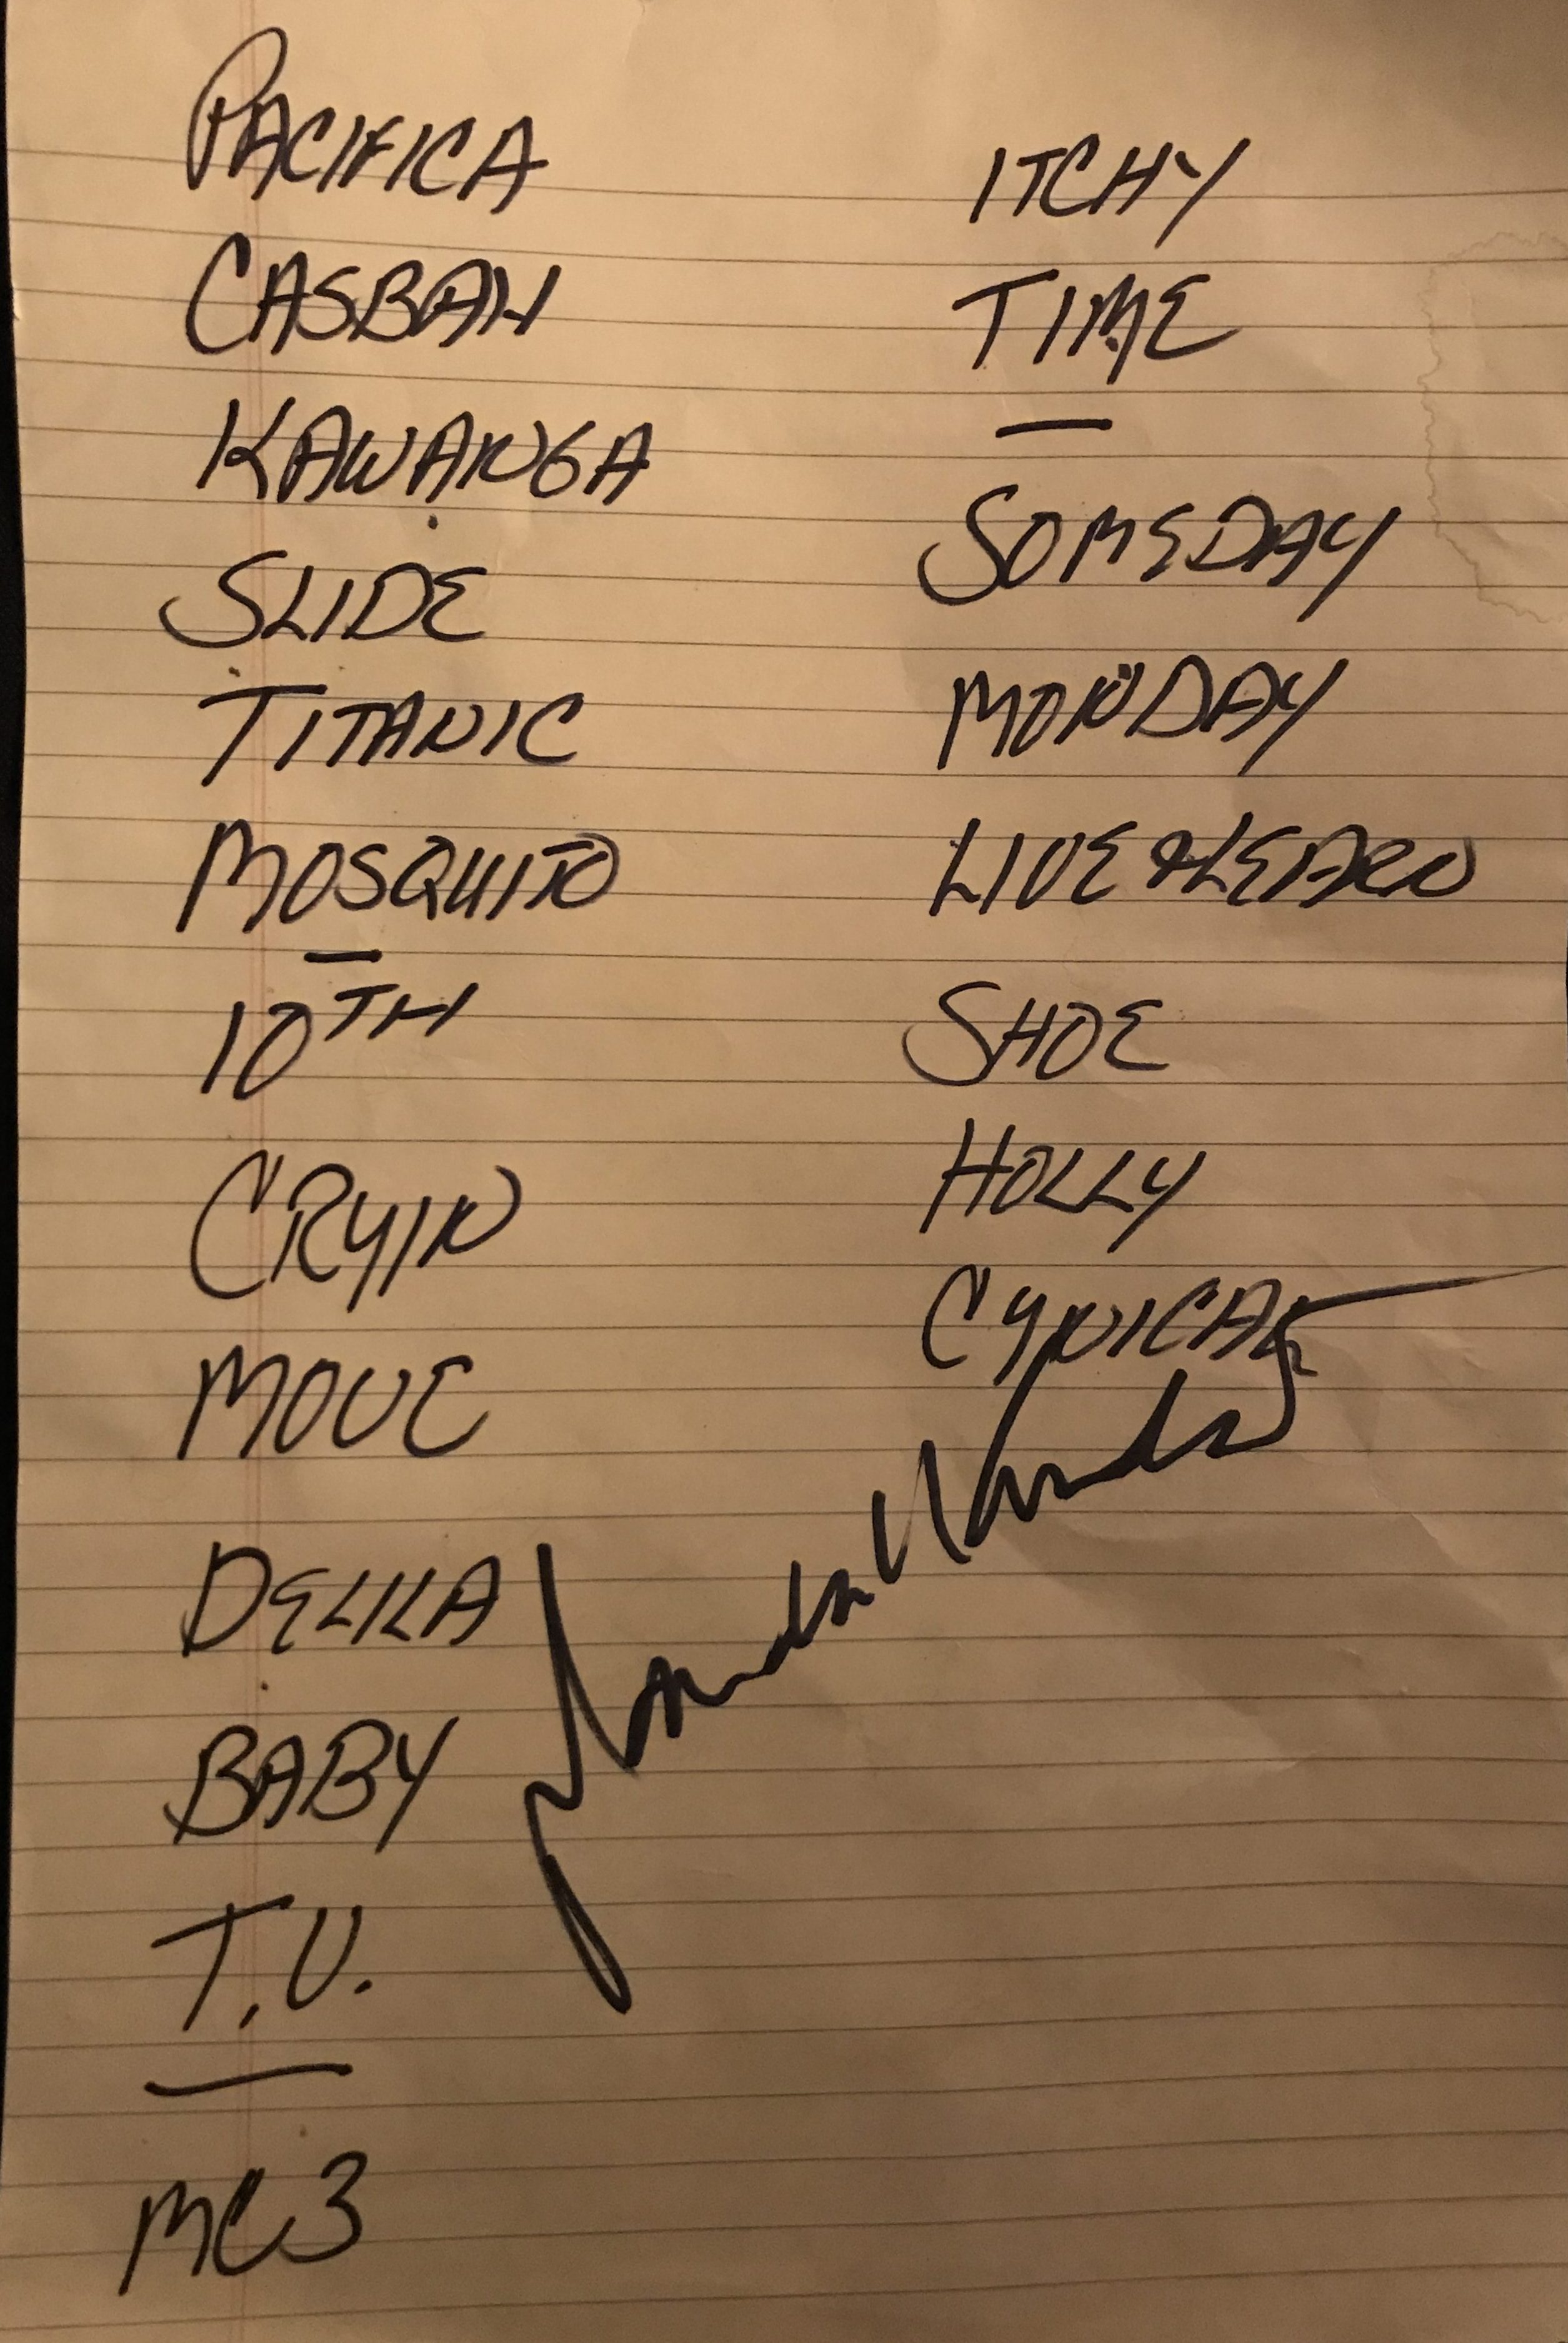 PACIFICA
CASBAH
KAWANGA
SLIDE
TITANIC
MOSQUITO
10TH
CRYIN
MOVE
DELILA
BABY
T.V.
MC3
ITCHY
TIME
SOMEDAY
MONDAY
LIVE & LEARN
SHOE
HOLLY
CYNICAL